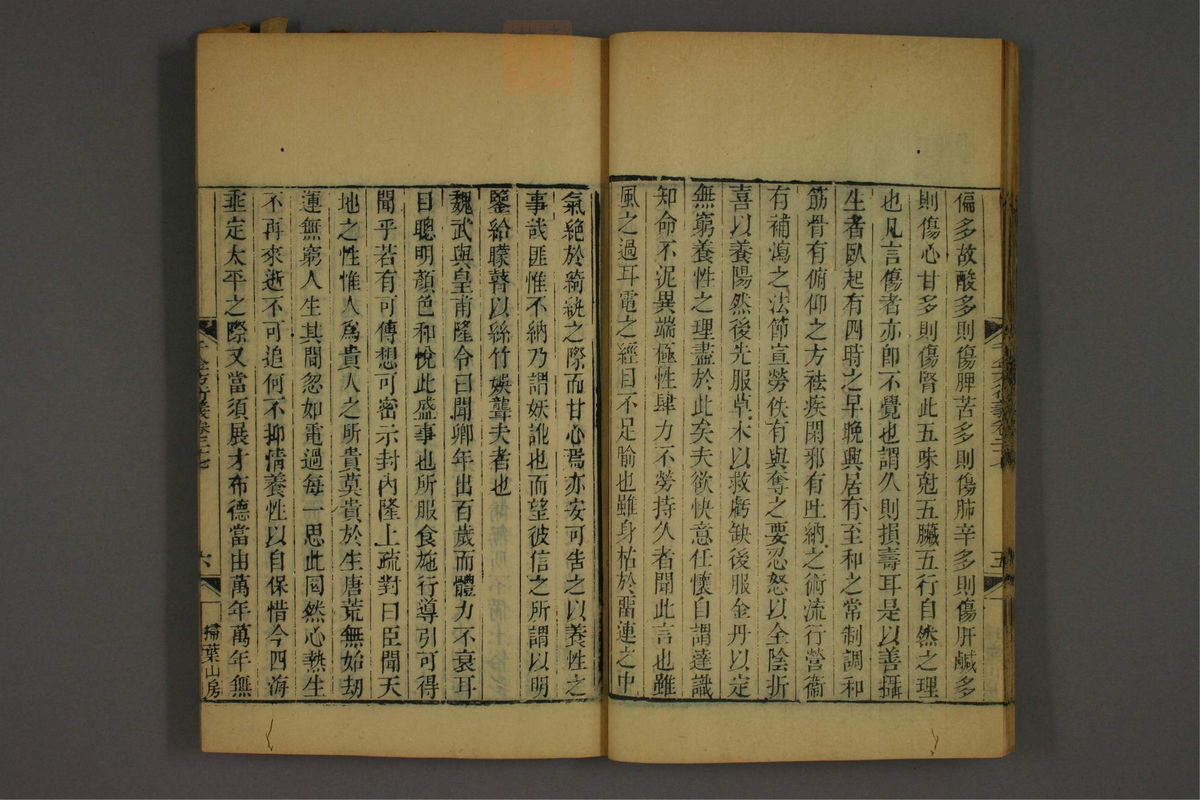 偏多故酸多則傷脾苦多則傷肺辛多則傷肝鹹多
則傷心甘多則傷腎此五味尅五臟五行自然之理
也凡言傷者亦卽不覺也謂久則損壽耳是以善攝
生者臥起有四時之早晚興居有至和之常制調和
筋骨有俯仰之方祛疾閑邪有吐納之術流行營衞
有補瀉之法節宣勞佚有與奪之要忍怒以全陰折
喜以養陽然後先服草木以救虧缺後服金丹以定
無窮養性之理盡於此矣夫欲快意任懷自謂達識
知命不泥異端極性肆力不勞持久者聞此言也雖
風之過耳電之經目不足喻也雖身枯於畱連之中
千金方衍義卷二十七
五
氣絕於綺紈之際而甘心焉亦安可告之以養性之
事哉匪惟不納乃謂妖訛也而望彼信之所謂以明
鑒給矇瞽以絲竹娛聾夫者也
魏武與皇甫隆令曰聞卿年出百歲而體力不衰耳
目聰明顏色和悅此盛事也所服食施行導引可得
聞乎若有可傳想可密示封內隆上疏對曰臣聞天
地之性惟人爲貴人之所貴莫貴於生唐荒無始劫
運無窮人生其間忽如電過每一思此罔然心熱生
不再來逝不可追何不抑情養性以自保惜今四海
垂定太平之際又當須展才布德當由萬年萬年無
千金方衍義卷二十七
六
掃葉山房